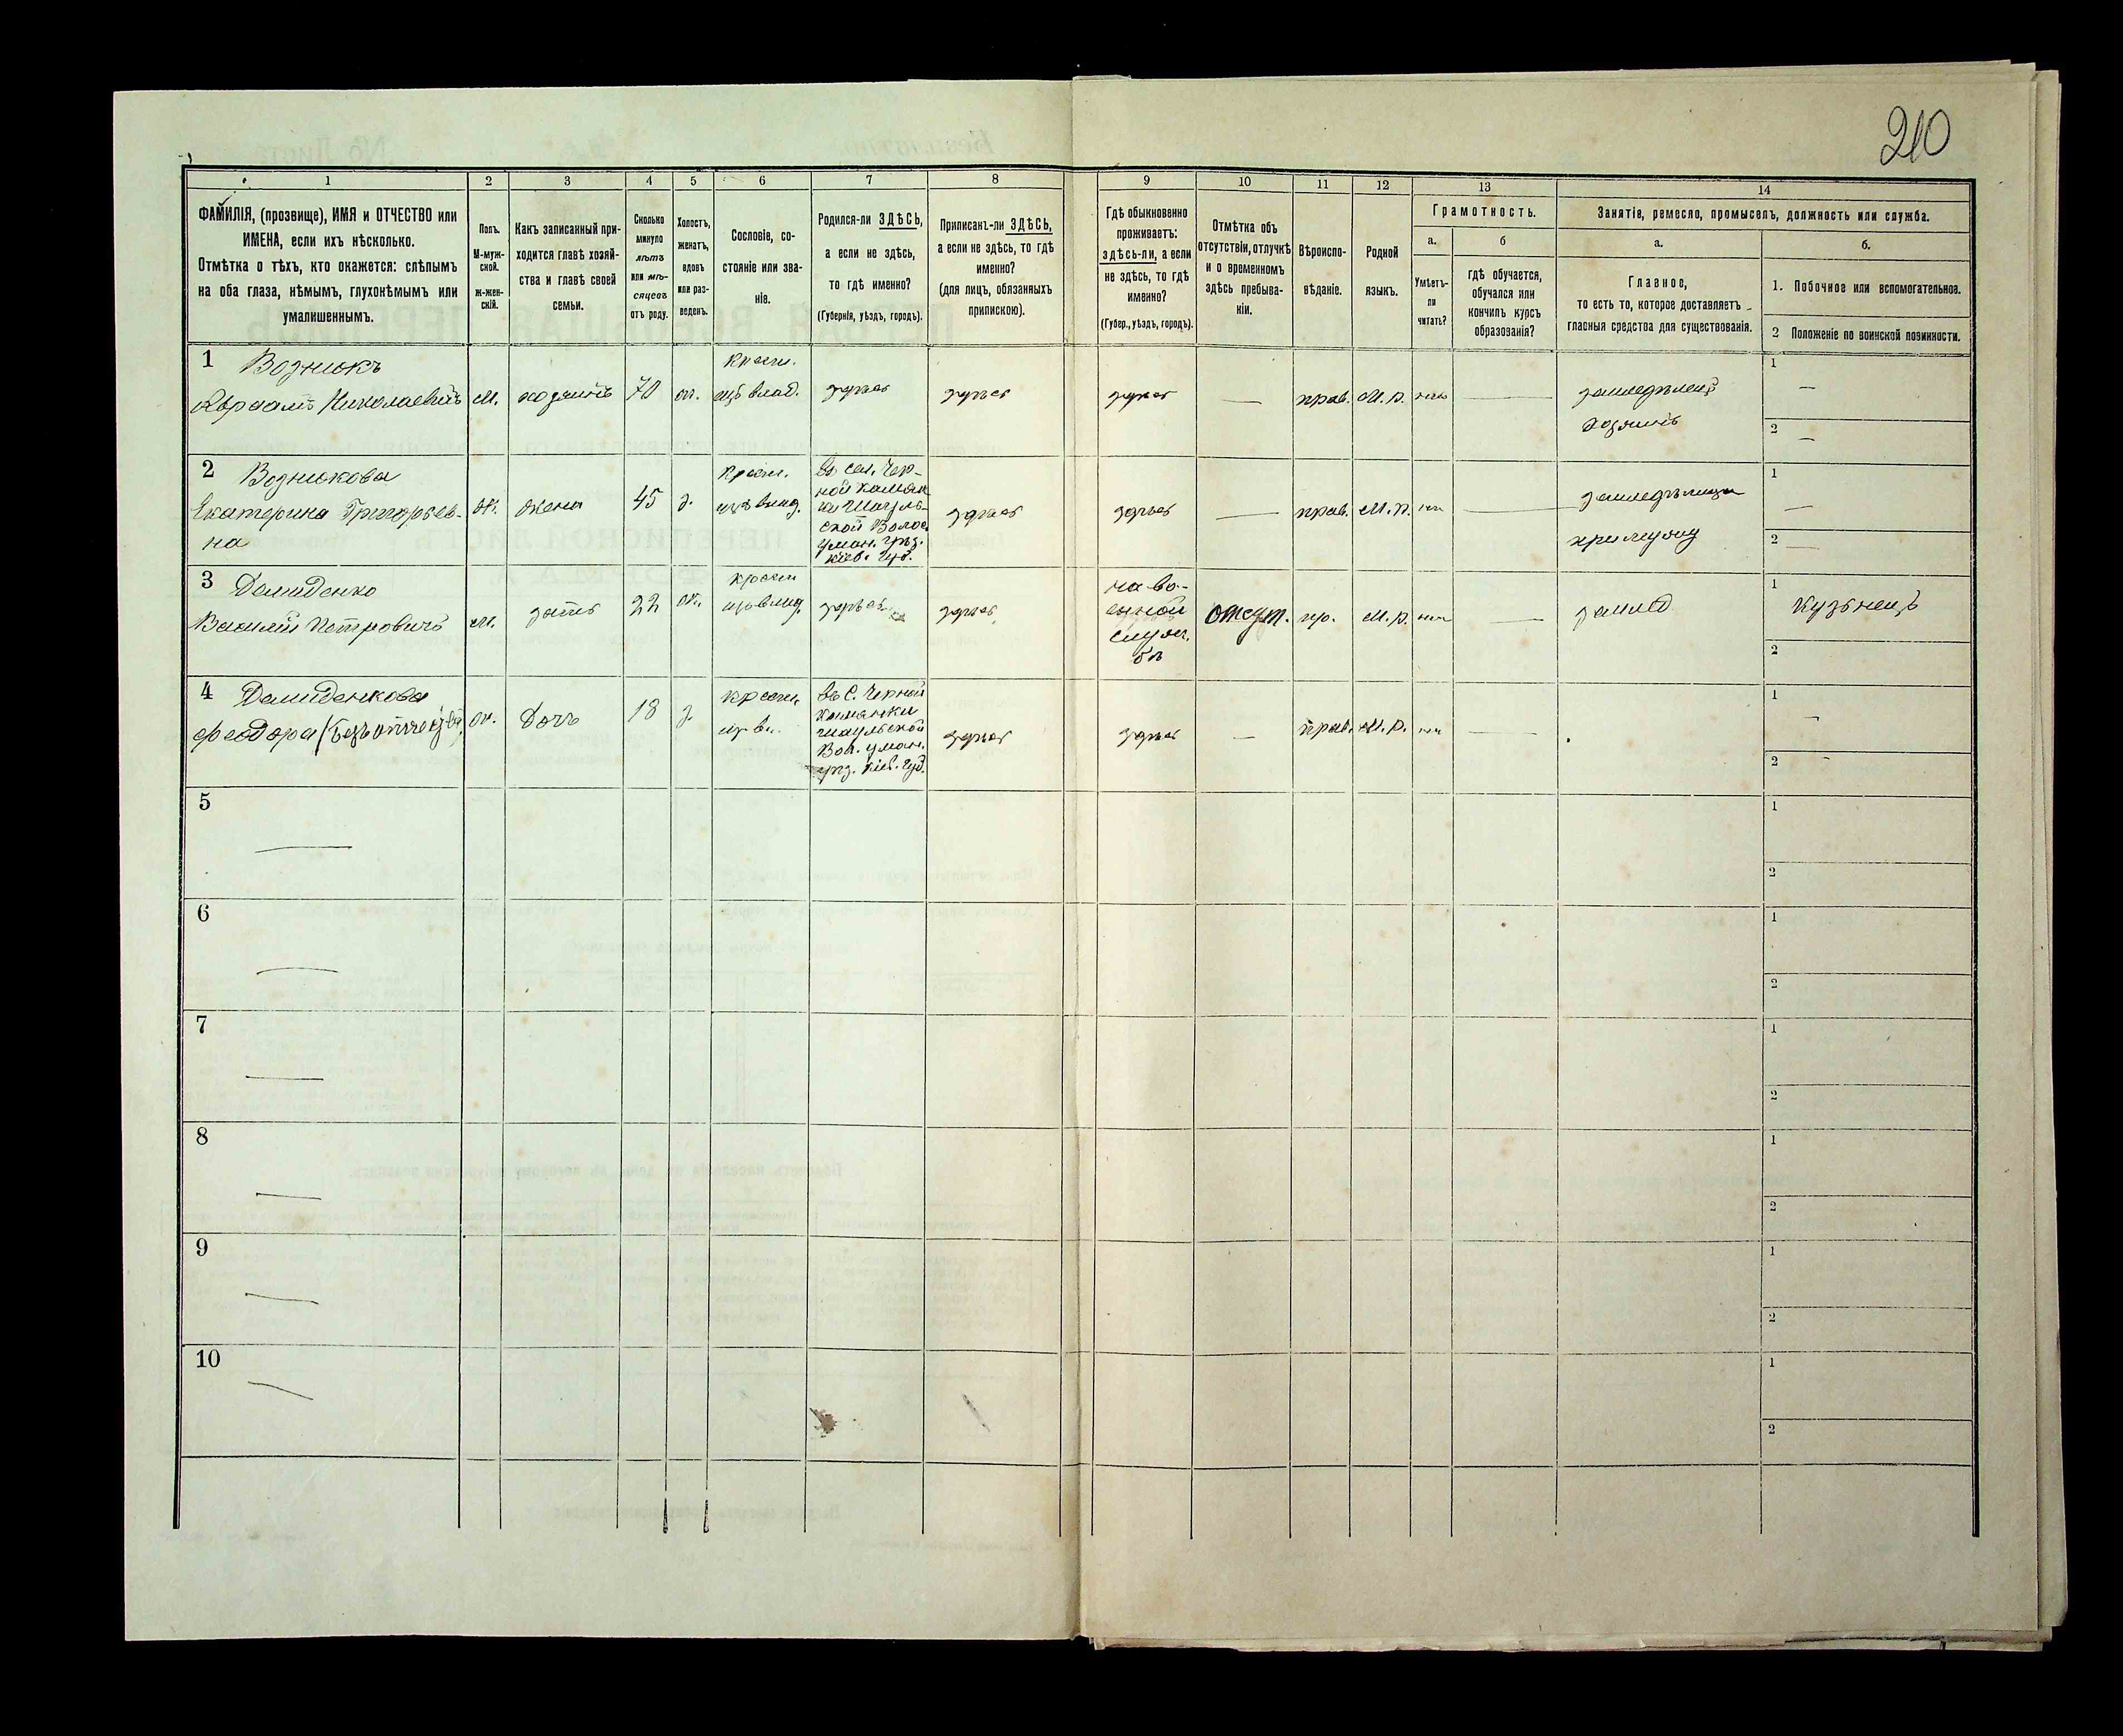 210
1 2 3 4 5 6 7 8 9 10 11 12 13 14
ФАМИЛІЯ, (прозвище), ИМЯ и ОТЧЕСТВО или
ИМЕНА, если ихъ нѣсколько.
Отмѣтка о тѣхъ, кто окажется: слѣпымъ
на оба глаза, нѣмымъ, глухонѣмымъ или
умалишеннымъ.
Полъ.
М-муж-
ской.
Ж-жен-
скій.
Какъ записанный при-
ходится главѣ хозяй-
ства и главѣ своей
семьи.
Сколько
минуло
лѣтъ
или мѣ-
сяцевъ
отъ роду.
Холостъ,
женатъ,
вдовъ
или раз-
веденъ.
Сословіе, со-
стояніе или зва-
ніе.
Родился-ли ЗДѢСЬ,
а если не здѣсь,
то гдѣ именно?
(Губернія, уѣздъ, городъ).
Приписанъ-ли ЗДѢСЬ,
а если не здѣсь, то гдѣ
именно?
(для лицъ, обязанныхъ
припискою).
Гдѣ обыкновенно
проживаетъ:
здѣсь-ли, а если
не здѣсь, то гдѣ
именно?
(Губер., уѣздъ, городъ).
Отмѣтка объ
отсутствіи, отлучкѣ
и о временномъ
здѣсь пребыва-
ніи.
Вѣроиспо-
вѣданіе.
Родной
языкъ.
Грамотность.
а.
Умѣетъ-
ли
читать?
б
гдѣ обучается,
обучался или
кончилъ курсъ
образованія?
Занятіе, ремесло, промыселъ, должность или служба.
а.
Главное,
то есть то, которое доставляетъ
главныя средства для существованія.
б.
1. Побочное или вспомогательное.
2 Положеніе по воинской повинности.
1 Вознюкъ
Авраамъ Николаевичъ
М.
хозяинъ
70
крестн.
изъ влад.
здѣсь
здѣсь
здѣсь
—
прав.
М. р.
нѣтъ
—
земледѣлецъ
хозяинъ
1 —
2 —
2 Вознюкова
Екатерина Григорьев-
на
Ж.
жена
45
з.
крестн.
изъ влад.
въ сел. Чер-
ной Камян
ки Шауль-
ской Волос.
Уман. уѣз.
Кіев. Губ.
здѣсь
здѣсь
—
прав.
М. р.
нѣтъ
—
земледѣлица
1 —
2 —
3 Демиденко
Василій Петровичъ
М.
зять
22
ж.
крестн
изъ влад.
здѣсь
здѣсь
на во-
енной
служ.
бѣ
отсут.
пр.
М. р.
нѣтъ
—
землед
1 Кузьнецъ
2
4 Демиденкова
Феодора (безъ отчества)
Ж.
Дочь
18
з.
крестн.
из вл.
въ С. Черной
Камянки
Шаульской
Вол. Уман.
уѣз. Кіев. Губ.
здѣсь
здѣсь
—
прав.
М. р.
нѣтъ
—
1 —
2 -
5 —
1
2
6 —
1
2
7 —
1
2
8 —
1
2
9 —
1
2
10 —
1
2